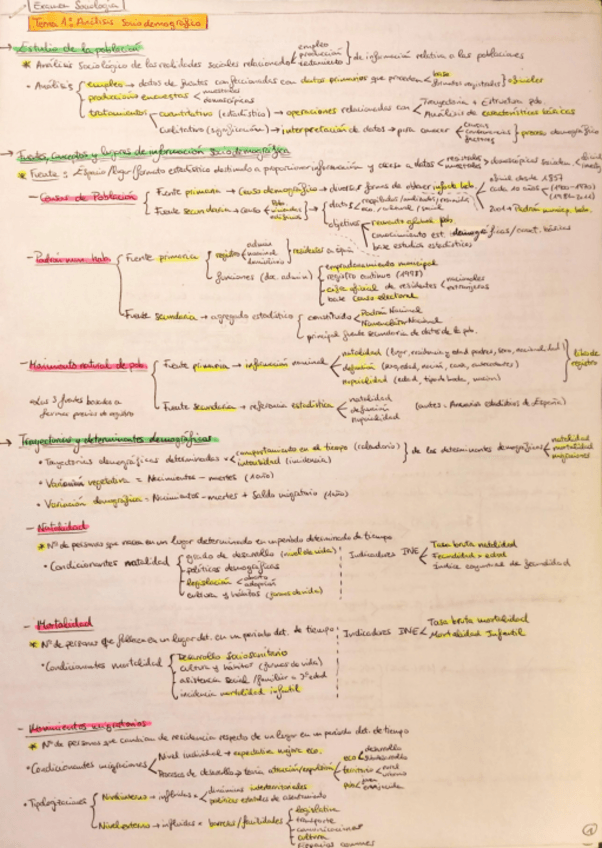 Examen Sociología
Tema 1: Análisis Sociodemográfico
→ Estudio de la población
* Análisis Sociológico de las realidades sociales relacionado < empleo producción } de información relativa a las poblaciones
• Análisis { empleo → datos de fuentes confeccionadas con datos primarios que proceden < base } oficiales
producción encuestas < muestrales demoscópicas
tratamientos - cuantitativo (estadístico) → operaciones relacionadas con < Trayectoria + Estructura pob. Análisis de características básicas
Cualitativo (significación) → interpretación de datos → para conocer < causas consecuencias factores } proceso demográfico
→ Fuentes, conceptos y lugares de información Sociodemográfica
* Fuente: Espacio/lugar/formato estadístico destinado a proporcionar información y acceso a datos
- Censos de Población { Fuente primaria → Censo demográfico → diversas formas de obtener
oficial desde 1857
cada 10 años
2001 → Padrón municip. hab.
Fuente secundaria → censo < Pob. viviendas edificios } → { datos
objetivos { recuento global pob.
conocimiento est. demográficas/caract. básicas
base estudios estadísticos
- Padrón mun. hab. { Fuente primaria { registro { admin nominal domiciliario } residentes a España
funciones (doc. admin) { empadronamiento municipal
registro continuo (1998)
cifra oficial de residentes < nacionales extranjeros
base censo electoral
Fuente secundaria → agregado estadístico { constituido < Padrón Nacional Numeración Nacional
principal fuente secundaria de datos de la pob.
- Movimiento natural de pob. { Fuente primaria → información nominal { natalidad (lugar, residencia y edad padres, sexo, nacionalidad)
defunción
nupcialidad (edad, tipo de boda, unión) } libro de registro
• Las 3 fuentes basadas a formar previas de registro
Fuente secundaria → referencia estadística < natalidad defunción nupcialidad (antes: Anuario Estadístico de España)
→ Trayectorias y determinantes demográficos
• Trayectorias demográficas determinadas x < comportamiento en el tiempo (calendario) intensidad (incidencia) } de los determinantes demográficos < natalidad mortalidad migraciones
• Variación vegetativa = Nacimientos - muertes (1año)
• Variación demográfica = Nacimientos - muertes + Saldo migratorio (1año)
- Natalidad
* Nº de personas que nacen en un lugar determinado en un período determinado de tiempo
• Condicionantes natalidad { grado de desarrollo (nivel de vida)
políticas demográficas
legislación < aborto adopción
cultura y hábitos (formas de vida)
Indicadores INE < Tasa bruta natalidad
Fecundidad x edad
Índice coyuntural de fecundidad
- Mortalidad
* Nº de personas que fallecen en un lugar det. en un período det. de tiempo
• Condicionantes mortalidad { Desarrollo sociosanitario
cultura y hábitos (formas de vida)
asistencia social/familiar a 3ª edad
incidencia mortalidad infantil
Indicadores INE < Tasa bruta mortalidad
Mortalidad Infantil
- Movimientos migratorios
* Nº de personas que cambian de residencia respecto de un lugar en un período det. de tiempo
• Condicionantes migraciones < Nivel individual → expectativa mejora eco.
Procesos de desarrollo y teoría atracción/expulsión { eco < desarrollo subdesarrollo
territorio < rural urbano
• Tipologías { Nivel interno → influidas x < dinámicas interterritoriales
políticas estatales de asentamiento
Nivel externo → influidas x barreras/facilidades { legislativa
transporte
comunicaciones
cultura
fronteras comunes
1